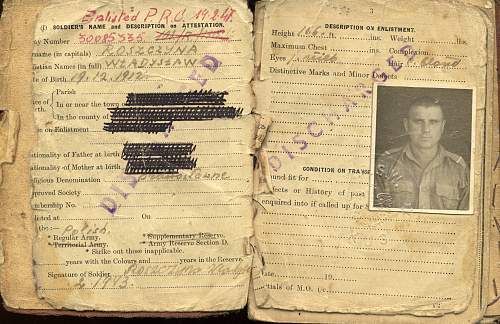 Enlisted P.R.C. 19.2.47.
(1) SOLDIER'S NAME and DESCRIPTION on ATTESTATION.
Army Number 30085335
Surname (in capitals) ROSZCZYNA
Christian Names (in full) WŁADYSŁAW
Date of Birth 19.12.1912
Parish
In or near the town of
In the county of
on Enlistment
Nationality of Father at birth
Nationality of Mother at birth
Religious Denomination
Approved Society
Membership No.
Enlisted at On
the:— Polish.
* Regular Army. * Supplementary Reserve.
* Territorial Army. * Army Reserve Section D.
* Strike out those inapplicable.
years with the Colours and years in the Reserve.
Signature of Soldier
1943
DISCHARGED
3
DESCRIPTION ON ENLISTMENT.
Height 166 ft. ins. Weight lbs.
Maximum Chest ins. Complexion
Eyes Hair C. blond
Distinctive Marks and Minor Defects
DISCHARGED
CONDITION ON TRANSFER
Found fit for
Defects or History of past
enquired into if called up for
Date 19
Initials of M.O. i/c